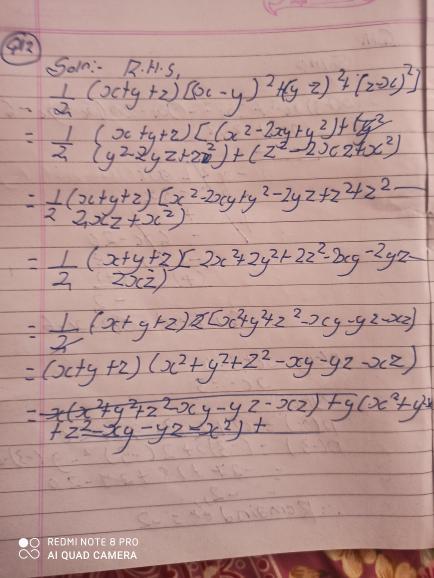 Q12
Soln:- R.H.S,
1/2 (x+y+z)[(x-y)²+(y-z)²+(z-x)²]
= 1/2 (x+y+z)[(x²-2xy+y²)+(y²
(y²-2yz+z²)+(z²-2xz+x²)
= 1/2 (x+y+z)[x²-2xy+y²-2yz+z²+z²-
2xz+x²)
= 1/2 (x+y+z)[2x²+2y²+2z²-2xy-2yz-
2xz)
= 1/2 (x+y+z)2[x²+y²+z²-xy-yz-xz)
= (x+y+z)(x²+y²+z²-xy-yz-xz)
= x(x²+y²+z²-xy-yz-xz)+y(x²+y²
+z²-xy-yz-xz)+
REDMI NOTE 8 PRO
AI QUAD CAMERA